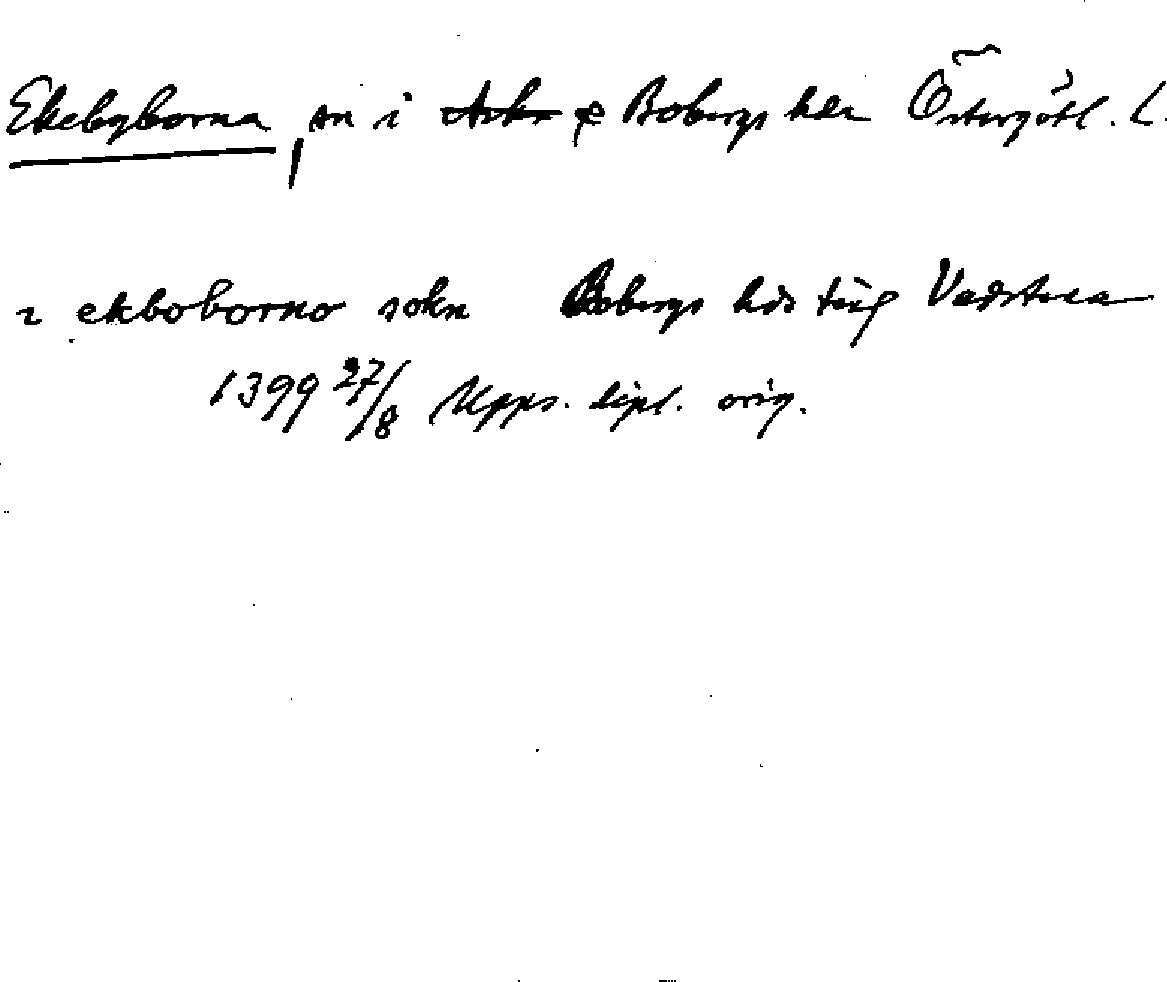 Ekebyborna, sn i Aska & Bobergs hdr Östergötl. l.
i ekboborno sokn Bobergs hds ting Vadstena
1399 27/8 Upps. dipl. orig.